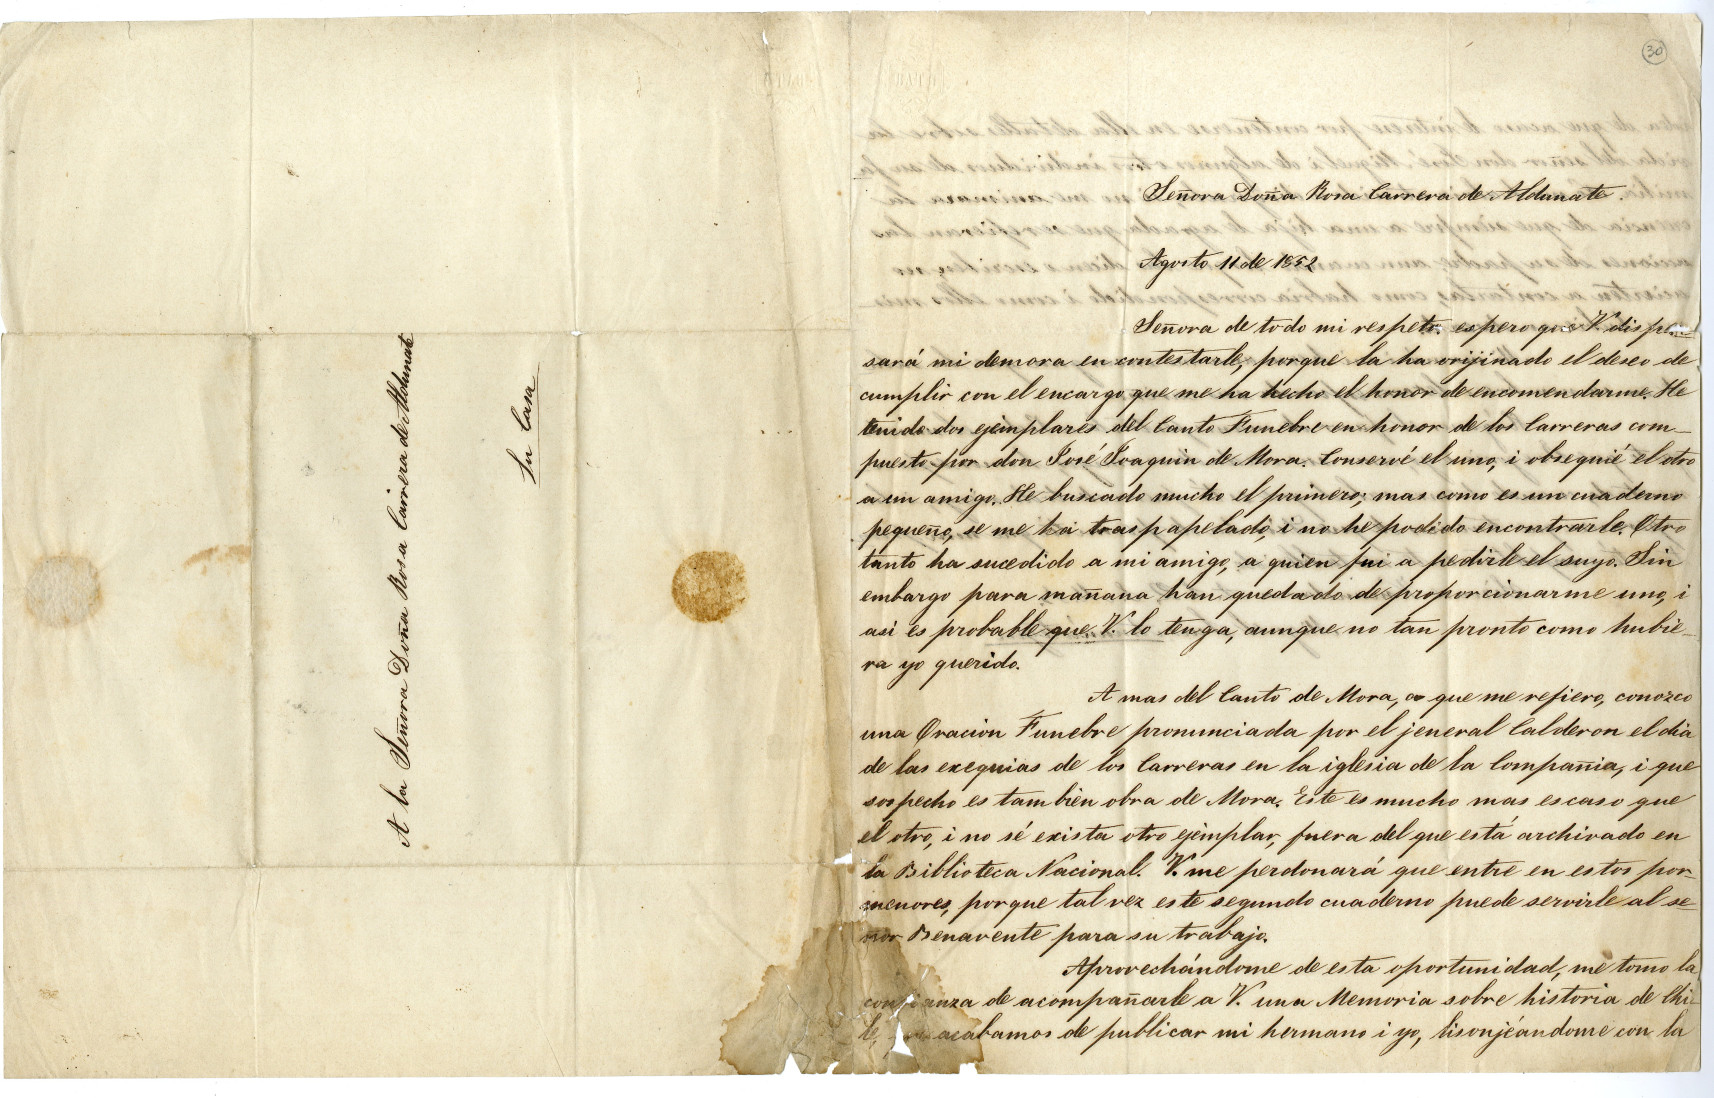 A la Señora Doña Rosa Carrera de Aldunate
Su Casa
30
Señora Doña Rosa Carrera de Aldunate.
Agosto 11 de 1852
Señora de todo mi respeto: espero que V. dispen-
sará mi demora en contestarle, porque la ha orijinado el deseo de
cumplir con el encargo que me ha hecho el honor de encomendarme. He
tenido dos ejemplares del Canto Funebre en honor de los Carreras com-
puesto por don José Joaquin de Mora. Conservé el uno, i obsequié el otro
a un amigo. He buscado mucho el primero; mas como es un cuaderno
pequeño, se me ha traspapelado, i no he podido encontrarle. Otro
tanto ha sucedido a mi amigo, a quien fui a pedirle el suyo. Sin
embargo para mañana han quedado de proporcionarme uno, i
asi es probable que V. lo tenga, aunque no tan pronto como hubie-
ra yo querido.
A mas del Canto de Mora, a que me refiero, conozco
una Oracion Funebre pronunciada por el jeneral Calderon el dia
de las exequias de los Carreras en la iglesia de la Compañia, i que
sospecho es tambien obra de Mora. Este es mucho mas escaso que
el otro, i no sé exista otro ejemplar, fuera del que está archivado en
la Biblioteca Nacional. V. me perdonará que entre en estos por-
menores, porque tal vez este segundo cuaderno puede servirle al se-
ñor Benavente para su trabajo.
Aprovechándome de esta oportunidad, me tomo la
confianza de acompañarle a V. una Memoria sobre historia de Chi-
le, acabamos de publicar mi hermano i yo, lisonjéandome con la